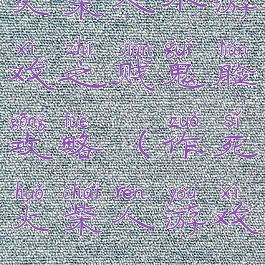 xì zhī jiàn guǐ liǎn
戏之贱鬼脸
gōng lüè zuò sǐ
攻略（作死
huǒ chái rén yóu xì
火柴人游戏